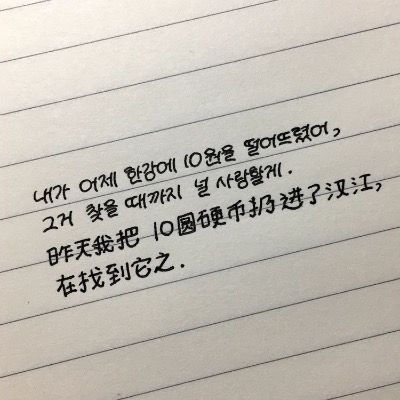 내가 어제 한강에 10원을 떨어뜨렸어,
그거 찾을 때까지 널 사랑할게.
昨天我把 10圆硬币扔进了汉江,
在找到它之.